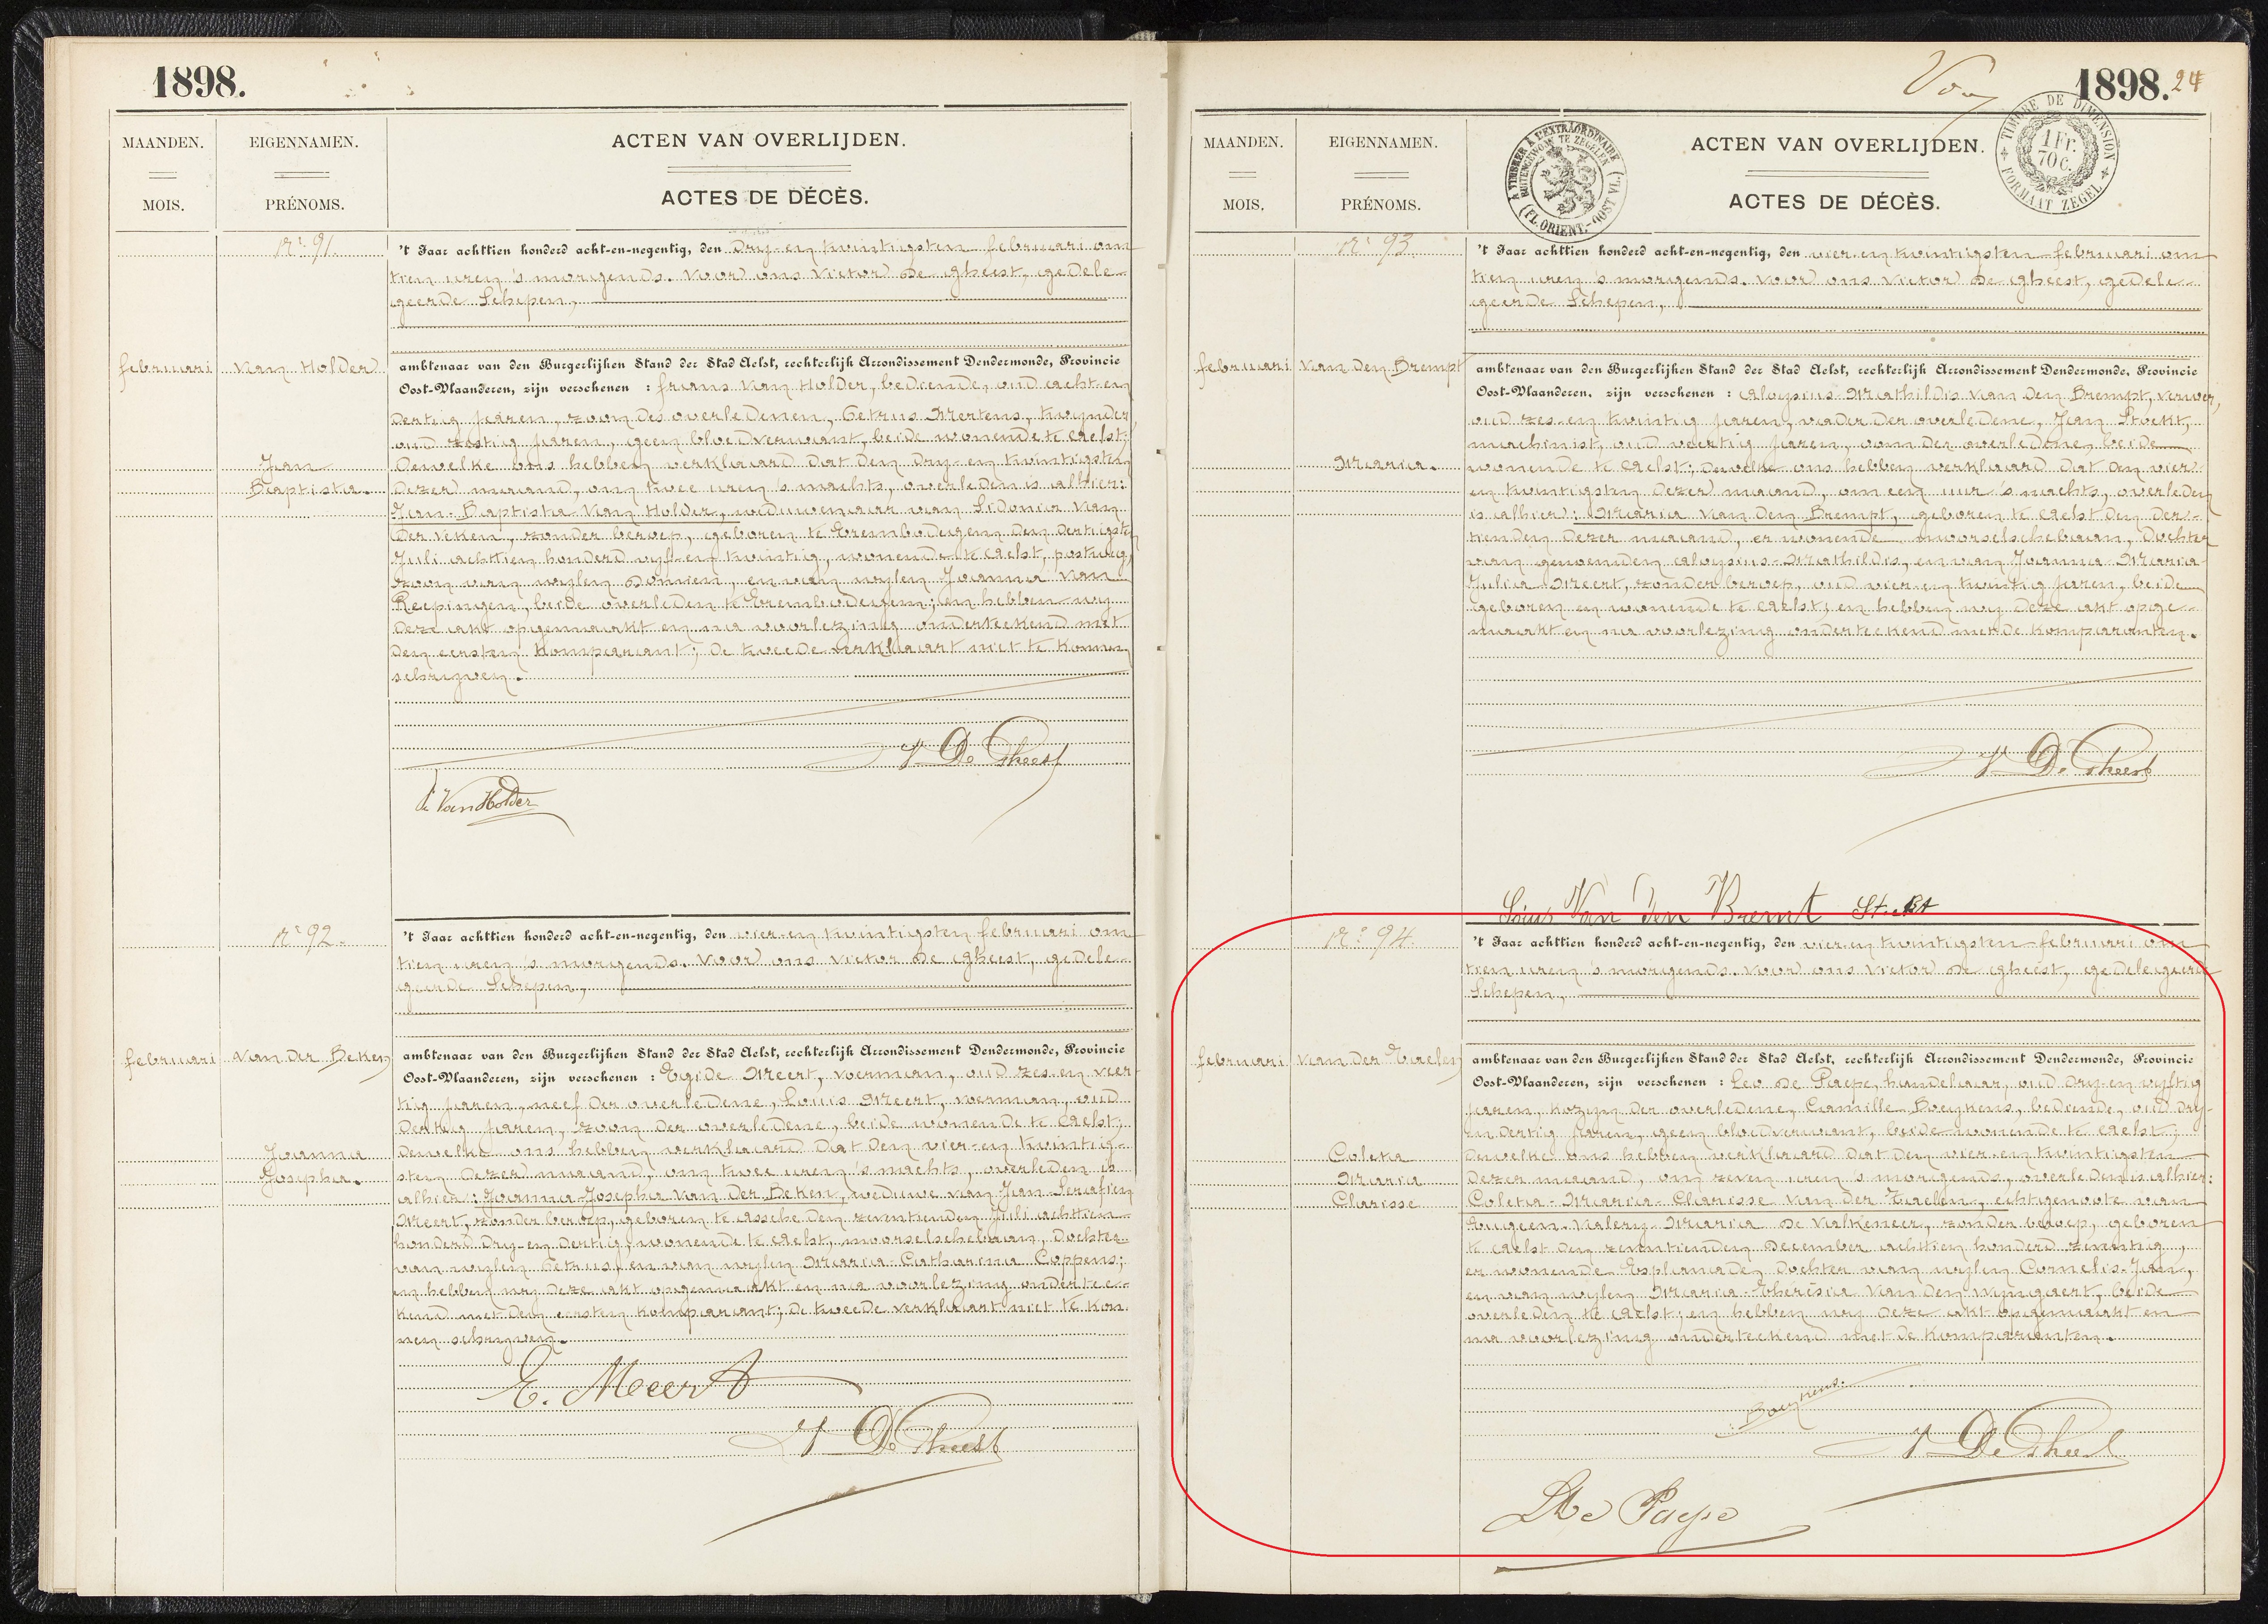 1898.
MAANDEN.
EIGENNAMEN.
ACTEN VAN OVERLIJDEN.
MOIS.
PRÉNOMS.
ACTES DE DÉCÈS.
N.r 91.
't Jaar achttien honderd acht-en-negentig, den dry-en twintigsten februari om
tien uren 's morgends. Voor ons Victor De Gheest, gedele-
geerde Schepen,
februari
Van Holder
Jean
Baptista.
ambtenaar van den Burgerlijken Stand der Stad Aelst, rechterlijk Arrondissement Dendermonde, Provincie
Oost-Vlaanderen, zijn verschenen : frans Van Holder, bediende, oud acht-en
dertig jaren, zoon des overledenen, Petrus Mertens, twynder
oud zestig jaren, geen bloedverwant, beide wonende te Aelst;
Dewelke ons hebben verklaard dat den dry-en twintigsten
dezer maand, om twee uren 's nachts, overleden is alhier:
Jean-Baptista Van Holder, weduwenaar van Sidonia Van
der Veken, zonder beroep, geboren te Erembodegem den dertigsten
Juli achttien honderd vyf-en twintig, wonende te Aelst, postweg,
zoon van wylen Domien, en van wylen Joanna Van
Reepingen, beide overleden te Erembodegem; en hebben wy
deze akt opgemaakt en na voorlezing onderteekend met
den eersten komparant; de tweede verklaart niet te konnen
schryven.
V De Gheest
Van Holder
N.r 92.
't Jaar achttien honderd acht-en-negentig, den vier-en twintigsten februari om
tien uren 's morgends. Voor ons Victor De Gheest, gedele-
geerde Schepen,
februari
Van der Beken
Joanna
Josepha.
ambtenaar van den Burgerlijken Stand der Stad Aelst, rechterlijk Arrondissement Dendermonde, Provincie
Oost-Vlaanderen, zijn verschenen : Egide Meert, voerman, oud zes en veer-
tig jaren, neef der overledene, Louis Meert, werman, oud
dertig jaren, zoon der overledene, beide wonende te Aelst;
dewelke ons hebben verklaard dat den vier-en twintig-
sten dezer maand, om twee uren 's nachts, overleden is
alhier: Joanna-Josepha Van der Beken, weduwe van Jan-Serafien
Meert, zonder beroep, geboren te Assche den zeventienden Juli achttien
honderd dry-en dertig, wonende te Aelst, moorselschebaan, dochter
van wylen Petrus, en van wylen Maria-Catharina Coppens;
en hebben wy deze akt opgemaakt en na voorlezing ondertee-
kend met den eersten komparant; de tweede verklaart niet te kon-
nen schryven.
E. Meert
V De Gheest
1898. 24
TIMBRE DE DIMENSION
1 Fr.
70 c.
FORMAAT ZEGEL
MAANDEN.
EIGENNAMEN.
ACTEN VAN OVERLIJDEN.
MOIS.
PRÉNOMS.
ACTES DE DÉCÈS.
A TIMBRER A L'EXTRAORDINAIRE
BUITENGEWOON TE ZEGELEN
(FL. ORIENT.-OOST VL.)
N.r 93.
't Jaar achttien honderd acht-en-negentig, den vier-en twintigsten februari om
tien uren 's morgends. Voor ons Victor De Gheest, gedele-
geerde Schepen,
februari
Van den Brempt
Maria.
ambtenaar van den Burgerlijken Stand der Stad Aelst, rechterlijk Arrondissement Dendermonde, Provincie
Oost-Vlaanderen, zijn verschenen : Aloysius-Mathildis Van den Brempt, verwer,
oud zes-en twintig jaren, vader der overledene, Jean Stockt,
machinist, oud veertig jaren, oom der overledene, beide
wonende te Aelst; dewelke ons hebben verklaard dat den vier-
en twintigsten dezer maand, om een uur 's nachts, overleden
is alhier: Maria Van den Brempt, geboren te Aelst den der-
tienden dezer maand, er wonende moorselschebaan, dochter
van genoemden Aloysius-Mathildis, en van Joanna-Maria-
Julia Meert, zonder beroep, oud vier-en twintig jaren, beide
geboren en wonende te Aelst; en hebben wy deze akt opge-
maakt en na voorlezing onderteekend met de komparanten.
V De Gheest
Van den Bremt
N.r 94.
't Jaar achttien honderd acht-en-negentig, den vier-en twintigsten februari om
tien uren 's morgends. Voor ons Victor De Gheest, gedelegeerde
Schepen,
februari
Van der Taelen
Coleta
Maria
Clarisse
ambtenaar van den Burgerlijken Stand der Stad Aelst, rechterlijk Arrondissement Dendermonde, Provincie
Oost-Vlaanderen, zijn verschenen : Leo De Paepe, handelaar, oud dry-en vyftig
jaren, kozyn der overledene, Camille Boeykens, bediende, oud dry-
en dertig jaren, geen bloedverwant, beide wonende te Aelst;
dewelke ons hebben verklaard dat den vier-en twintigsten
dezer maand, om zeven uren 's morgends, overleden is alhier:
Coleta-Maria-Clarisse Van der Taelen, echtgenoote van
Eugeen-Valery-Maria De Valkeneer, zonder beroep, geboren
te Aelst den zeventienden December achttien honderd zeventig,
er wonende Esplanade, dochter van wylen Cornelis-Jan,
en van wylen Maria-Theresia Van den Wyngaert, beide
overleden te Aelst; en hebben wy deze akt opgemaakt en
na voorlezing onderteekend met de komparanten.
Boeykens.
V De Gheest
De Paepe